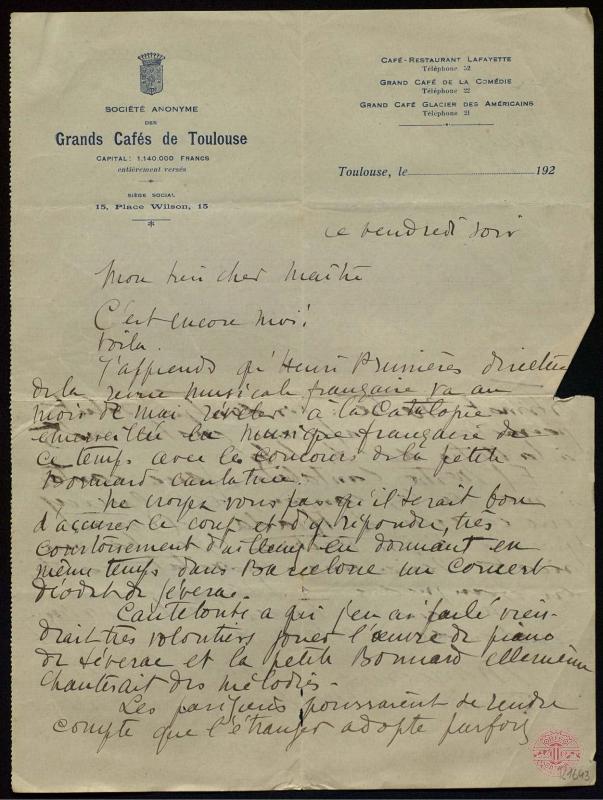 SOCIÉTÉ ANONYME
DES
Grands Cafés de Toulouse
CAPITAL: 1.140.000 FRANCS
entièrement versés
SIÈGE SOCIAL
15, Place Wilson, 15
CAFÉ-RESTAURANT LAFAYETTE
Téléphone 52
GRAND CAFÉ DE LA COMÉDIE
Téléphone 22
GRAND CAFÉ GLACIER DES AMÉRICAINS
Téléphone 21
Toulouse, le 192
ce vendredi soir
Mon très cher Maître
C'est encore moi!
Voila.
J'apprends qu'Henri Prunières directeu
de la revue musicale française va au
mois de mai révéler à la Catalogne
émerveillée la musique française de
ce temps avec le concours de la petite
Bonnard cantatrice.
Ne croyez vous pas qu'il serait bon
d'accuser le coup et d'y répondre, très
courtoisement d'ailleurs en donnant en
même temps dans Barcelone un concert
Déodat de Séverac.
Canteloube a qui j'en ai parlé vien-
drait très volontiers jouer l'œuvre de piano
de Séverac et la petite Bonnard elle même
chanterait des mélodies.
Les parisiens pourraient se rendre
compte que l'étranger adopte parfois
121643